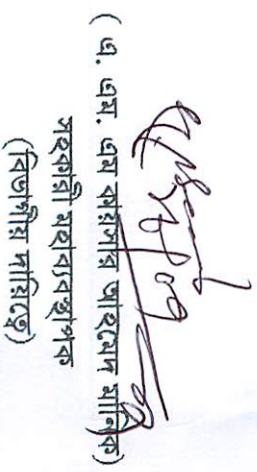 ( এ. এম. এম কায়সার আহমেদ মানিক)
সহকারী মহাব্যবস্থাপক
(বিভাগীয় দায়িত্বে)